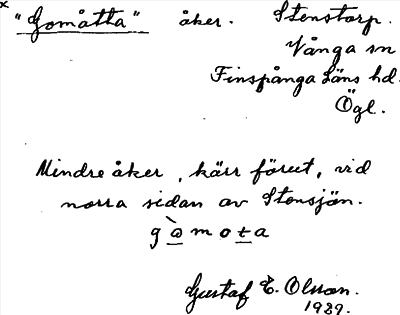 x "Gomåtta" åker. Stenstorp.
Vånga sn
Finspånga Läns hd.
Ögl.
Mindre åker, kärr förut, vid
norra sidan av Stensjön.
g m o t a
Gustaf E. Olsson.
1929.